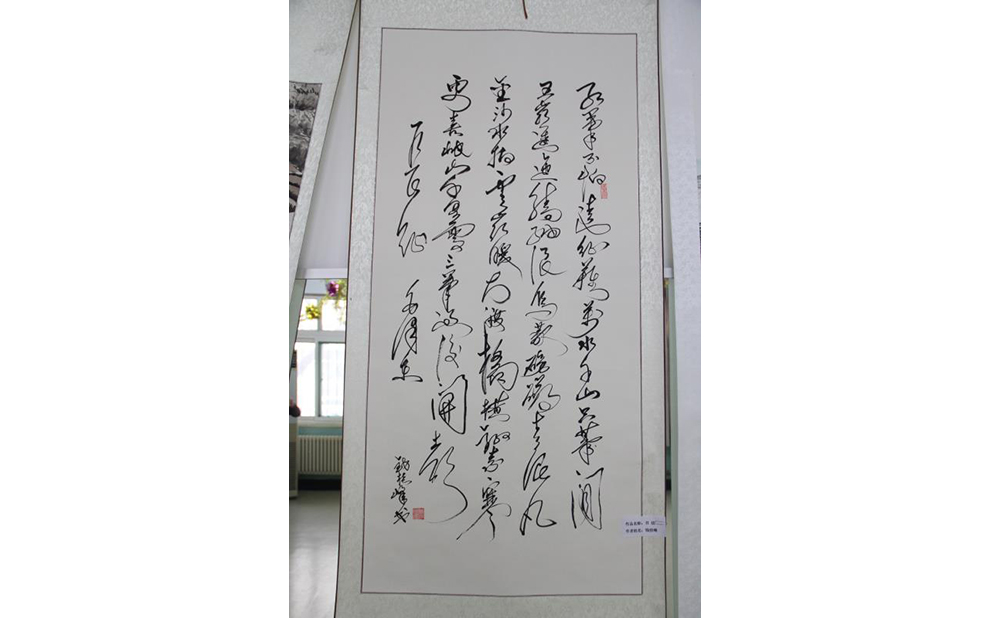 红軍不怕遠征難萬水千山只等闲
五嶺逶迤騰細浪烏蒙磅礴走泥丸
金沙水拍雲崖暖大渡橋横鐵索寒
更喜岷山千里雪三軍過後開顔
长征 毛澤东
峰书
作品名称：书
作者姓名：